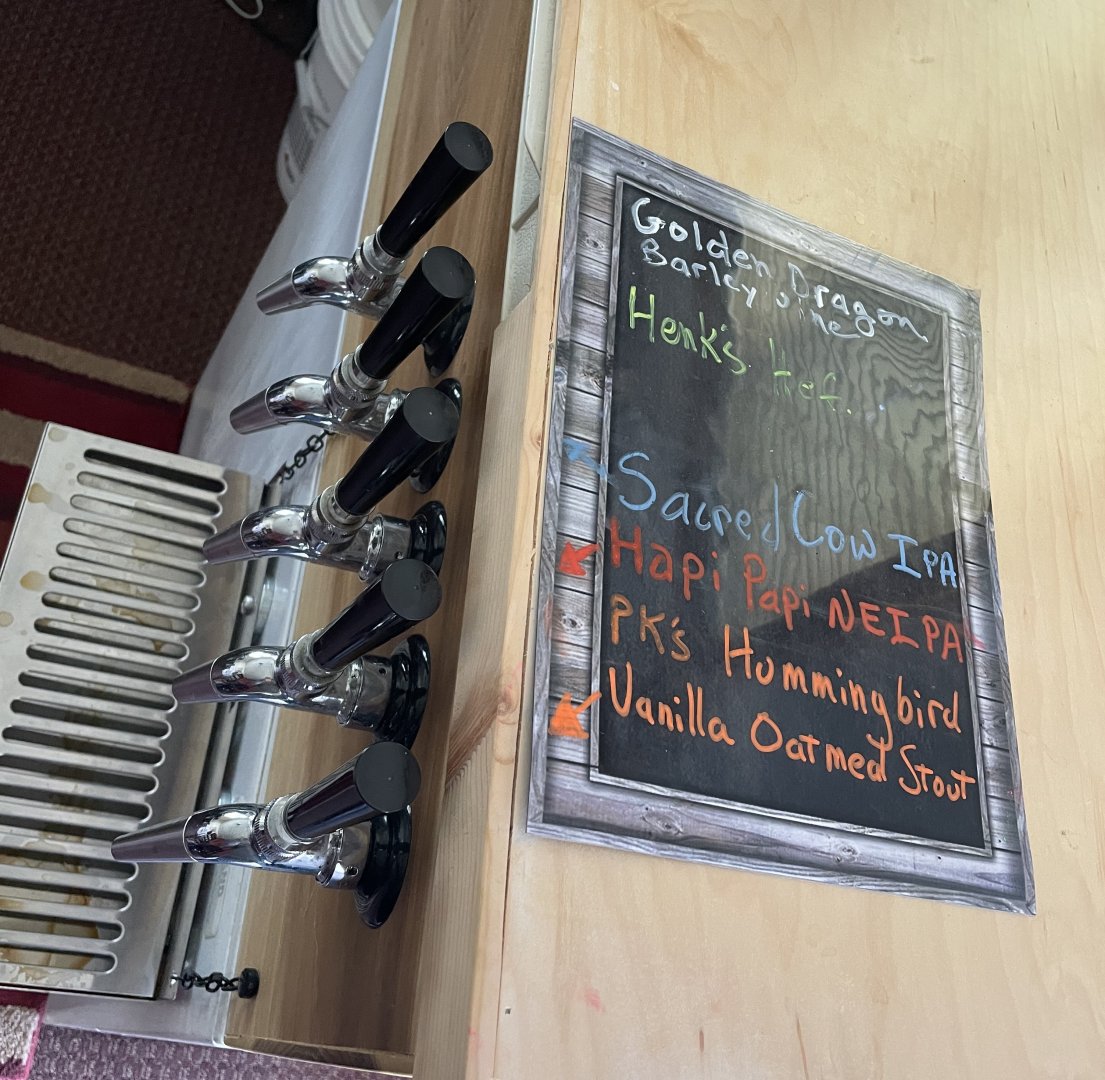 Golden Dragon
Barleywine
Henk's Hef...
Sacred Cow IPA
Hapi Papi NEIPA
PK's Hummingbird
Vanilla Oatmeal Stout